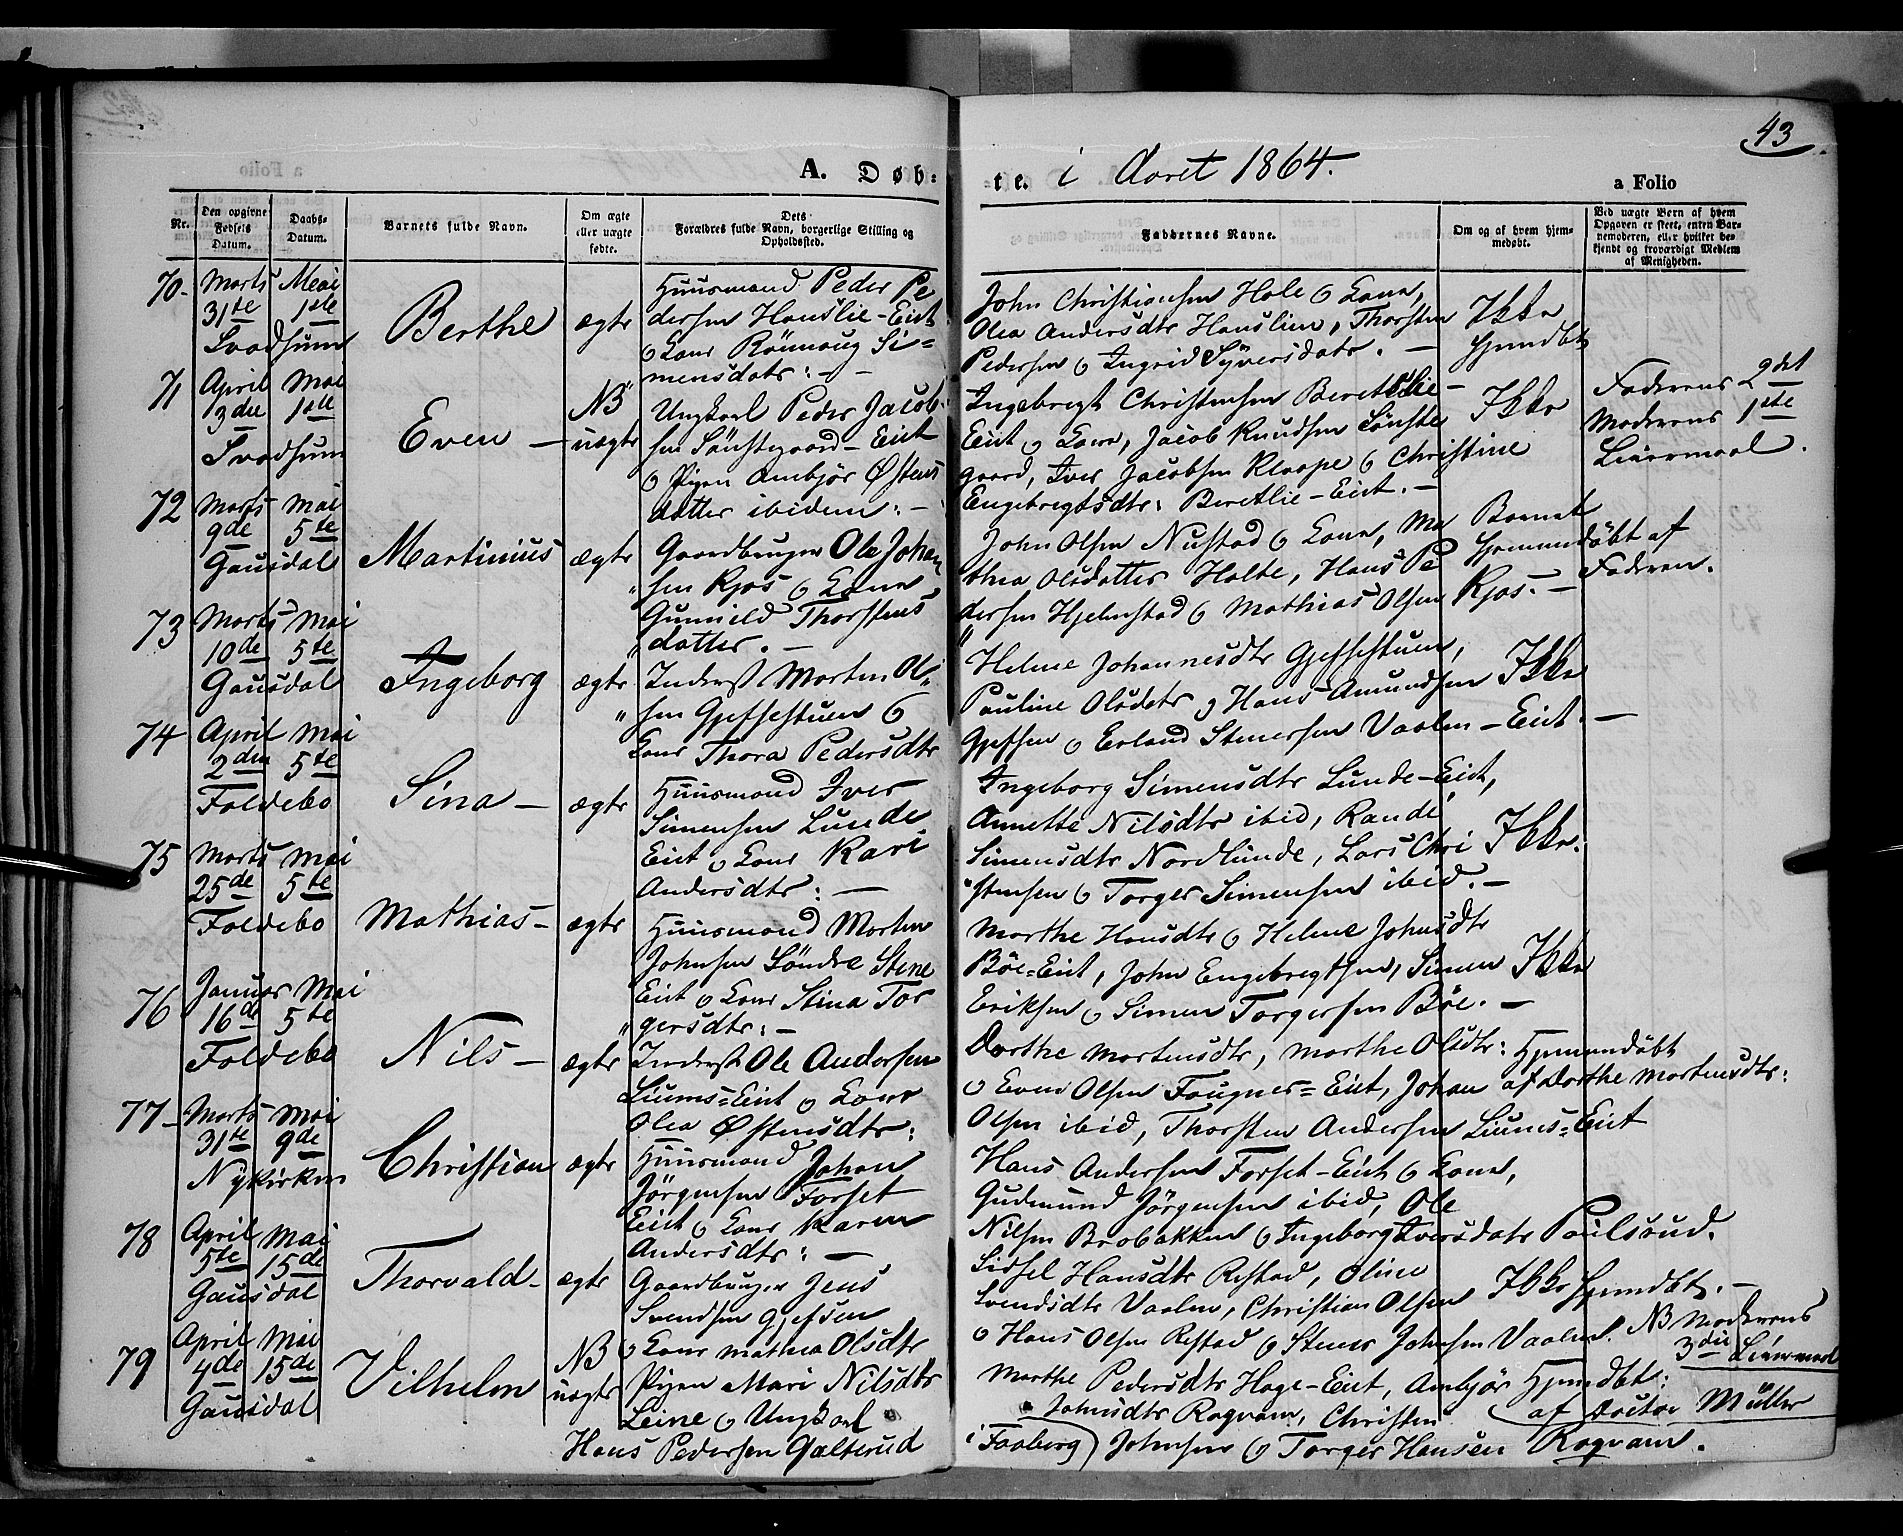 43
A. Døb-te. i Aaret 1864.
a Folio
Nr.
Den opgivne Fødsels Datum.
Daabs-Datum.
Barnets fulde Navn.
Om ægte eller uægte fødte.
Dets Forældres fulde Navn, borgerlige Stilling og Opholdssted.
Faddernes Navne.
Om og af hvem hjemmedøbt.
Ved uægte Børn af hvem Opgaven er skeet, enten Barnemoderen, eller hvilket bekjendt og troværdigt Medlem af Menigheden.
70-
Marts Meai
31te 1ste
Svadsum
Berthe
ægte
Huusmand Peder Pe
dersen Hauslie-Eiet
o Kone Rönnaug Si=
mensdatr: -
John Christiansen Hole o Kone,
Olea Andersdtr Hauslien, Thorsten
Pedersen o Ingrid Syversdatr. -
Ikke
hjemdbt
71
April Mai
13de 1ste
Svadsum
Even -
NB
uægte
Ungkarl Peder Jacob-
sen Sönstegaard-Eiet
o Pigen Ambjör Østens
datter ibidem: -
Ingebregt Christensen Beretlie-
Eiet o Kone, Jacob Knudsen Sönste
gaard, Iver Jacobsen Kraape o Christine
Engebregtsdtr: Beretlie-Eiet. -
Ikke
Faderens 2det
Moderens 1ste
Leiermaal.
72
Marts Mai
9de 5te
Gausdal
Martinius
ægte
Gaardbruger Ole Johan
"sen Kjos o Kone
Gunnild Thorstens
"datter. -
John Olsen Nustad o Kone, Ma
thea Olsdatter Holte, Hans Pe
dersen Hjelmstad o Mathias Olsen Kjos. -
Barnet
hjemmedöbt af
Faderen.
73
Marts Mai
10de 5te
Gausdal
Ingeborg
ægte
Inderst Morten Ol-
"sen Gjefsestuen o
Kone Thora Pedersdtr
Helene Johannesdtr Gjefsestuen,
Pauline Olsdatr o Hans Amundsen
Gjefsen o Erland Stenersen Vaalen-Eiet. -
Ikke
74
April Mai
2den 5te
Foldebo
Sina -
ægte
Huusmand Iver
Simensen Lunde
Eiet o Kone Kari
Andersdtr: -
Ingeborg Simensdtr Lunde-Eiet,
Annette Nilsdtr ibid, Randi
Simensdtr Nordlunde, Lars Chri
"stensen o Torger Simensen ibid. -
Ikke.
75
Marts Mai
25de 5te
Foldebo
Mathias -
ægte
Huusmand Morten
Johnsen Söndre Stene
Eiet o Kone Stina Tor
"gersdtr: -
Marthe Hansdtr o Helene Johnsdtr
Böe=Eiet, John Engebregtsen, Simen
Eriksen o Simen Torgersen Böe. -
Ikke
76
Januar Mai
16de 5te
Foldebo
Nils -
ægte
Inderst Ole Andersen
Liums=Eiet o Kone
Olea Østensdtr:
Dorthe Mortensdtr, Marthe Olsdtr:
o Even Olsen Fougner=Eiet, Johan
Olsen ibid, Thorsten Andersen Liums=Eiet
Hjemmedöbt
af Dorthe Mortensdtr:
77-
Marts Mai
31te 9de
Nykirken
Christian
ægte
Huusmand Johan
Jörgensen Forset
Eiet o Kone Karen
Andersdtr: -
Hans Andersen Forset-Eiet o Kone,
Gudmund Jörgensen ibid, Ole
Nilsen Brobakken o Ingeborg Iversdatr Poulsrud.
78
April Mai
5te 15de
Gausdal
Thorvald -
ægte
Gaardbruger Jens
Svendsen Gjefsen
o Kone Mathea Olsdtr
Sidsel Hansdtr Restad, Oline
Svendsdtr Vaalen, Christian Olsen
o Hans Olsen Restad o Stener Johnsen Vaalen.
Ikke hjemdbt. -
79
April Mai
4de 15de
Gausdal
Vilhelm
NB
uægte
Pigen Mari Nilsdtr
Leine o Ungkarl
Hans Pedersen Galterud
i Faaberg)
Marthe Pedersdtr Hage-Eiet, Ambjör
Johnsdtr Rogvam, Christen
Johnsen o Torger Hansen Rogvam.
Hjemdbt:
af Doctor Müller
NB Moderens
3die Leiermaal